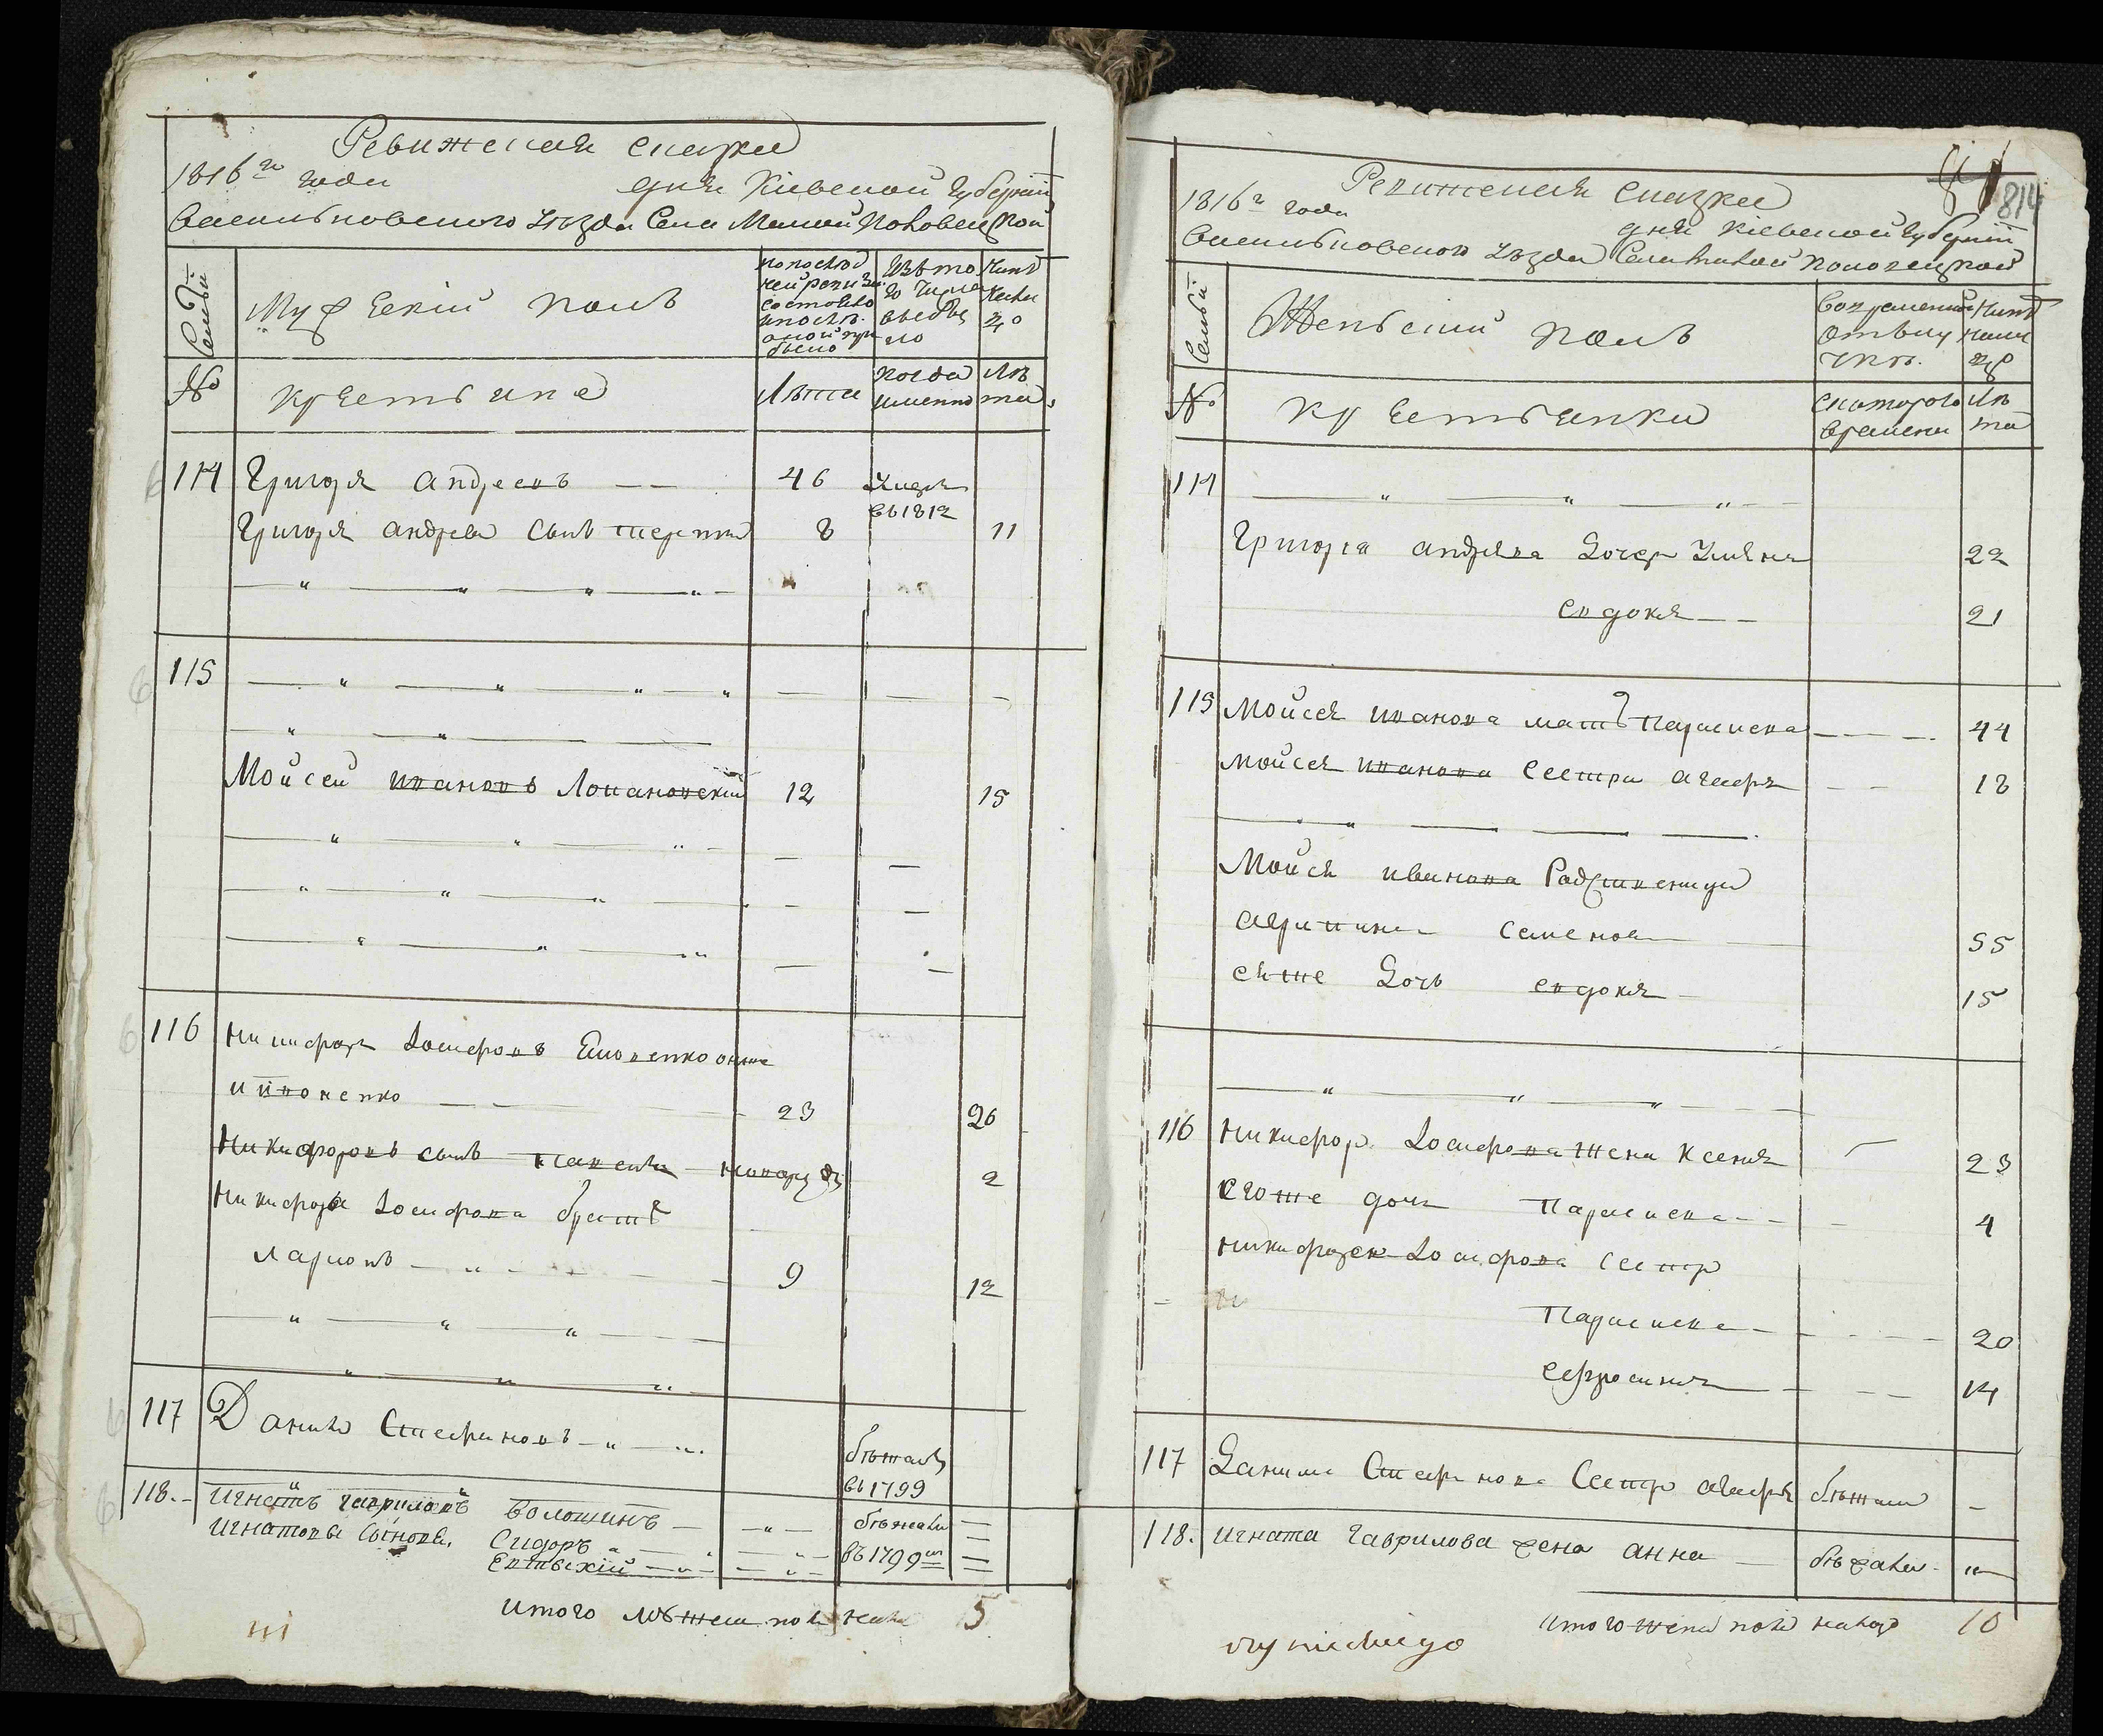 Ревижская сказка
1816го года дня Кіевской губерніи
Васильковского уѣзда Села Малой Половецкой
Семьи
Мужескій полъ
по послѣд
ней ревизіи
состояло
и послѣ
оной при
было
Изъ то
го числа
выбы
ло
Нынѣ
на ли
цо
№
крестьяне
Лѣта
когда
именно
Лѣ
та
114 Григоря Андреевъ 46 Умеръ
въ 1812
Григоря Андрева Сынъ терешко 8 11
115
Мойсей ивановъ Лопановскій 12 15
116 Никифоръ Іосифовъ онже
23 26
Никифоровъ сынъ 2
Никифора Іосифова братъ
Ларионъ 9 12
117 Данило Стефановъ бѣжалъ
въ 1799
118. Игнатъ гавриловъ Волошинъ бѣжали
Игнатовы Сыновя, Сидоръ въ 1799мъ
Евтъхій
итого мужеска пола нали 5
814
Ревижская Сказка
1816г года дня Кіевской губерніи
Васильковского уѣзда Села Малой Половецкой
Семьи
Женскій полъ
Во временной
отлу
чкѣ
Нынѣ
нали
цо
№
Крестьянки
Скоторого
времени
Лѣ
та
114
Григоря андрева Дочери Уляна 22
евдокя 21
115 Мойсея иванова мать Параскева 44
Мойсея иванова Сестра агафя 18
Мойся иванова Родственица
агрипина Семенова 55
ея же Дочь евдокя 15
116 Никифор Іосифова жена Ксеня 23
егоже дочь Параскева 4
Никифора Іосифова Сестр
Параскева 20
Ефросиня 14
117 Данила Стефанова Сестр агафя бѣжали
118. Игната гаврилова жена анна бѣжали
итого женска пола налицо 10